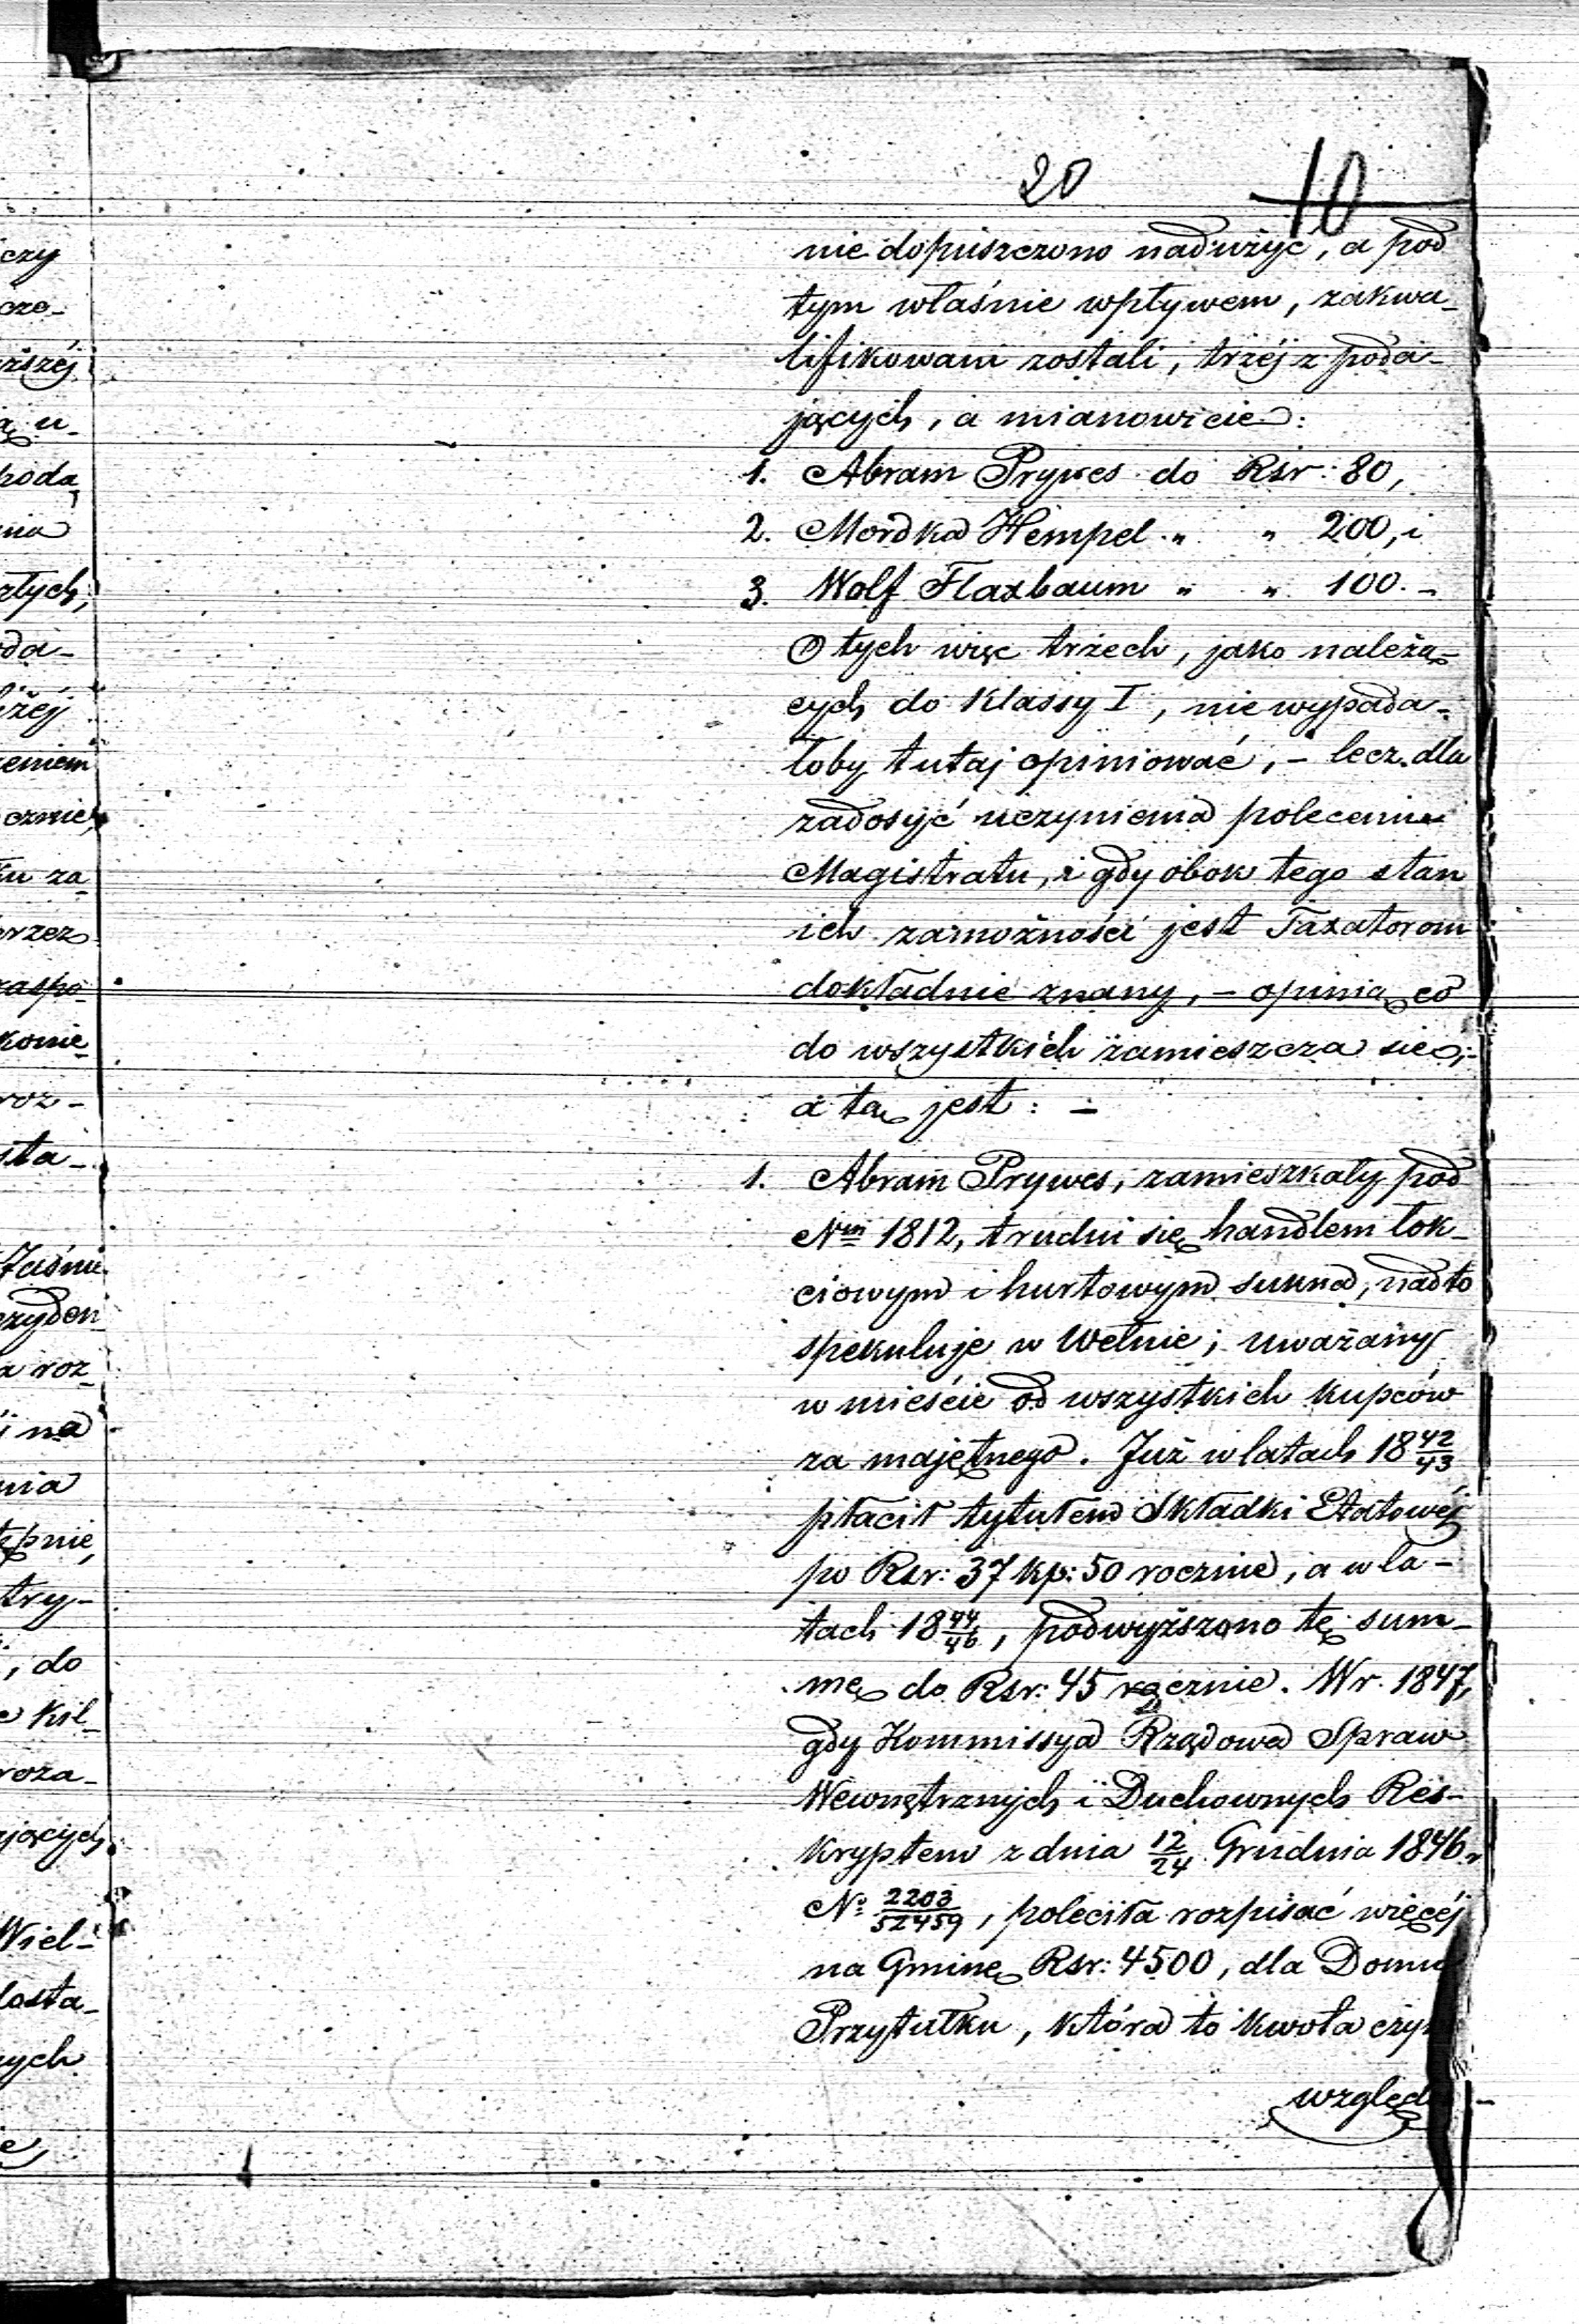 20 10
nie dopuszczono nadużyć, a pod
tym właśnie wpływem, zakwa-
lifikowani zostali, trzéj z poda-
jących, a mianowicie:
1. Abram Prywes do Rsr: 80,
2. Mordka Hempel " " 200, i
3. Wolf Flaxbaum " " 100. -
O tych więc trzech, jako należą-
cych do Klassy I, nie wypada-
łoby tutaj opiniować, - lecz dla
zadosyć uczynienia poleceniu
Magistratu, i gdy obok tego stan
ich zamożności jest Taxatorom
dokładnie znany, - opinią co
do wszystkich zamieszcza się,-
a tą jest: -
1. Abram Prywes, zamieszkały pod
Nm 1812, trudni się handlem łok-
ciowym i hurtowym sukna, nadto
spekuluje w Wełnie; uważany
w mieście od wszystkich kupców
za majętnego. Już w latach 18 42/43
płacił tytułem Składki Etatowéj
po Rsr: 37 kp: 50 rocznie, a w la-
tach 18 44/46, podwyższono tę sum-
mę do Rsr: 45 rocznie. W r. 1847,
gdy Kommissya Rządowa Spraw
Wewnętrznych i Duchownych Res-
kryptem z dnia 12/24 Grudnia 1846 r
No 2203/52459, poleciła rozpisać więcéj
na Gminę Rsr: 4500, dla Domu
Przytułku, która to kwota